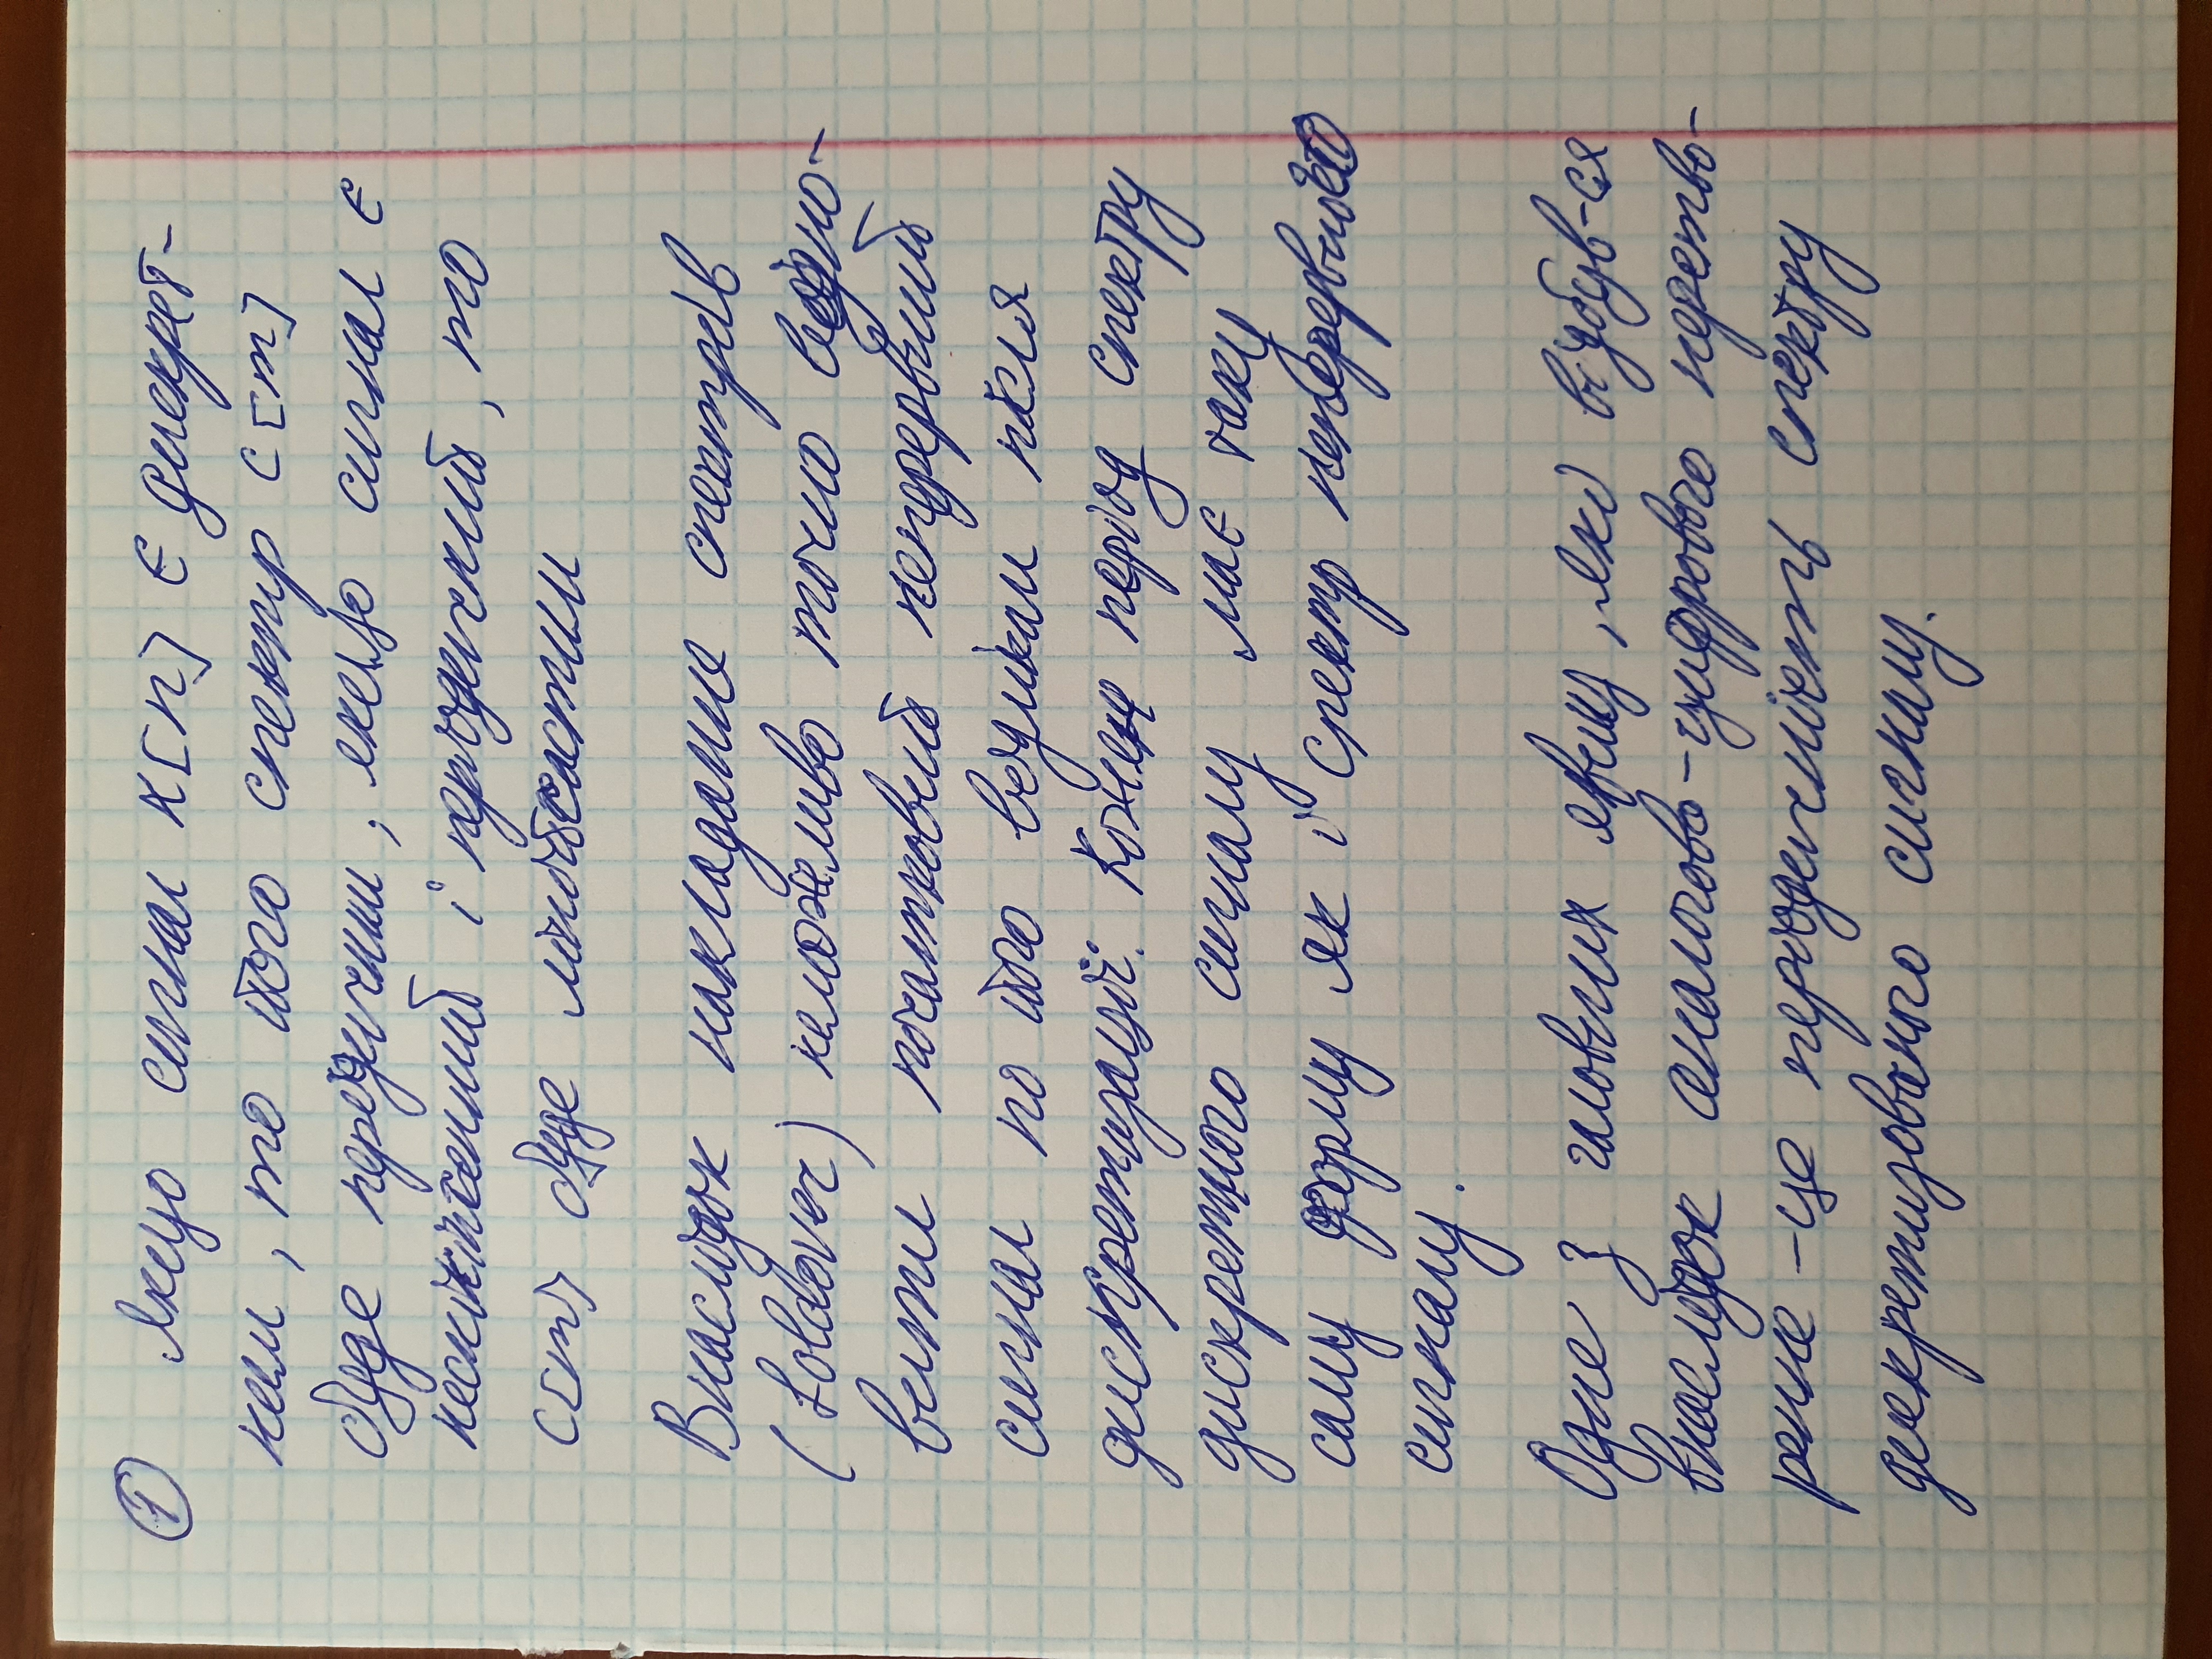 ① Якщо сигнал x[n] є дискрет-
ним, то його спектр C[m]
буде періодичним, якщо сигнал є
нескінченний і періодичний, то
C[m] буде лінійчастим
Внаслідок накладання спектрів
(foldover) неможливо точно відно-
вити початковий неперервний
сигнал по його відлікам після
дискретизації. Кожен період спектру
дискретного сигналу має таку
саму форму як і спектр неперервного
сигналу.
Одне з головних явищ, які відбув-ся
внаслідок аналогово-цифрового перетво-
рення - це періодичність спектру
дискретизованого сигналу.